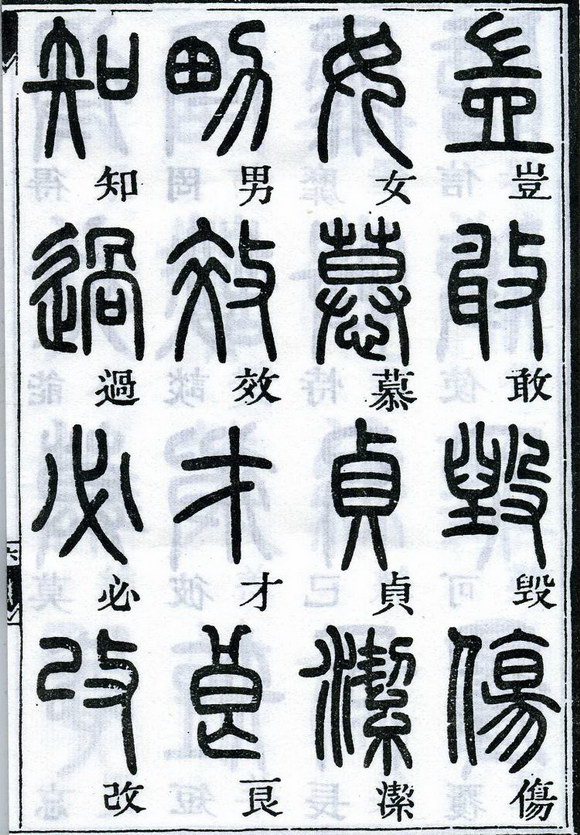 豈敢毀傷
女慕貞潔
男效才良
知過必改
六